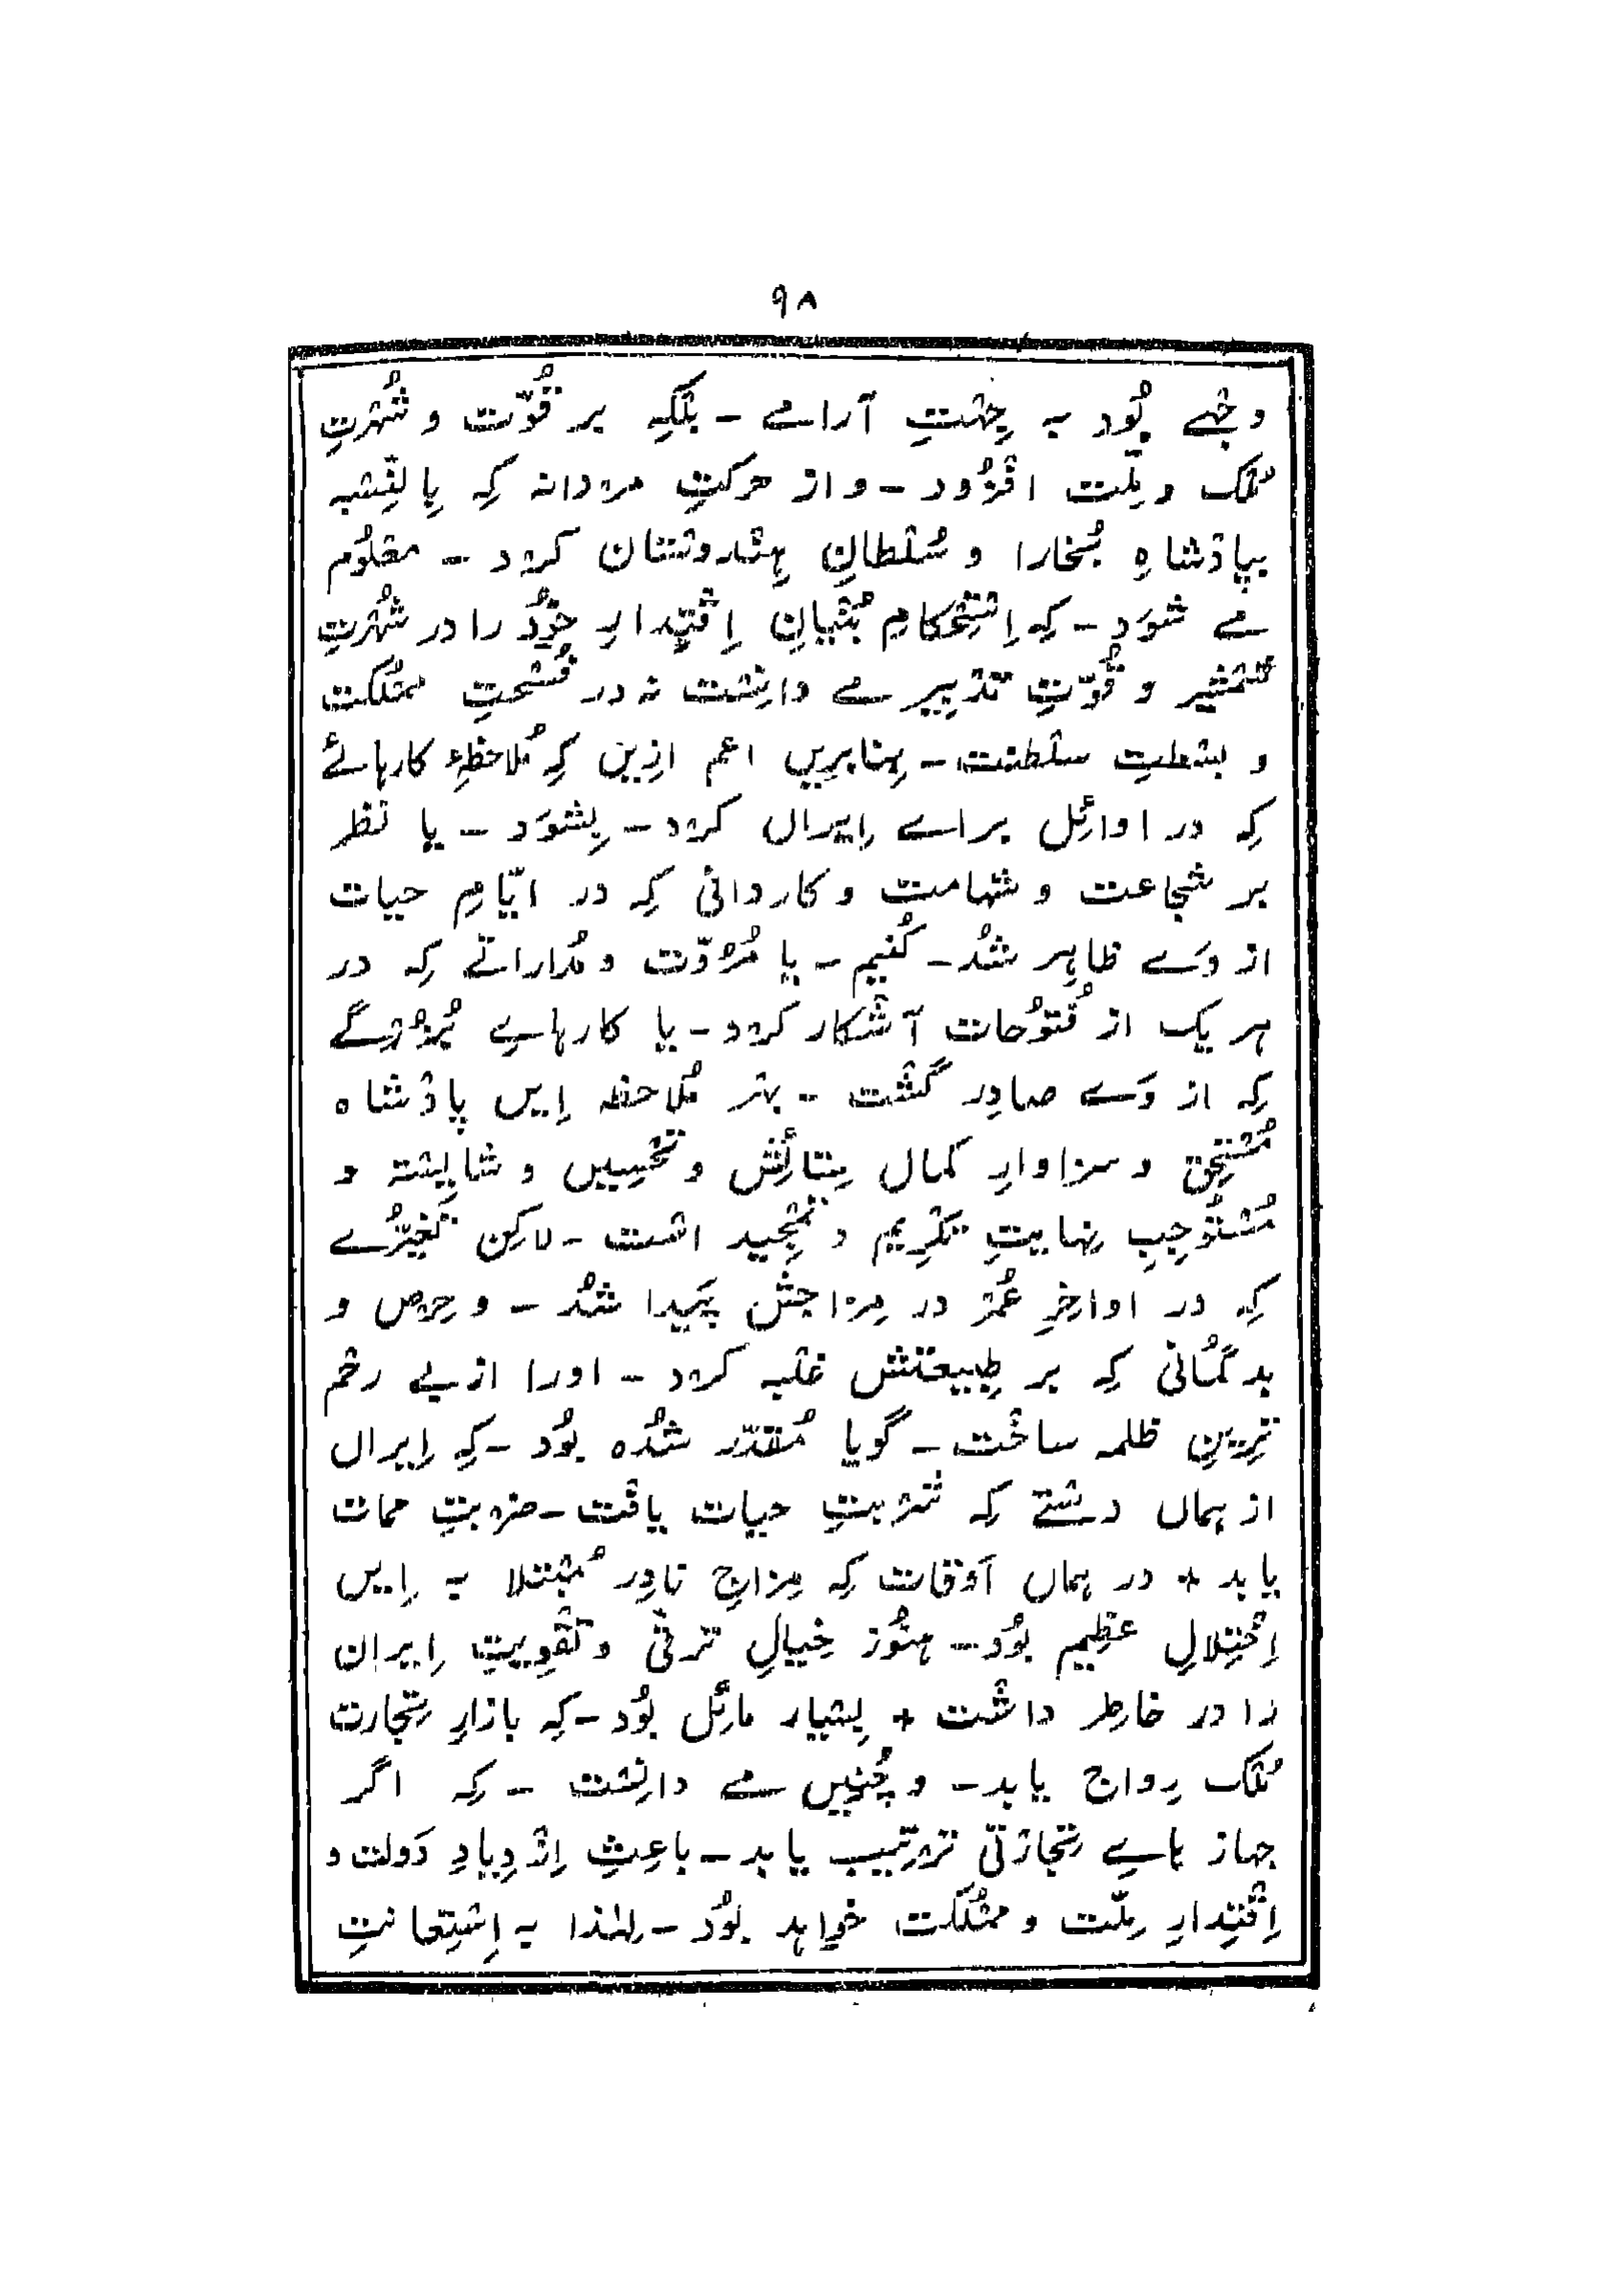 ۹۸
وجہے بُود بہ جِہتِ آرامے ـ بلکہ بر قُوّت و شُہرتِ
مُلک و مِلّت افزُود ـ و از حرکتِ مردانہ کِہ بِالنِّسبہ
بپادشاہِ بُخارا و سُلطانِ ہِندوستان کرد ـ معلُوم
مے شوَد ـ کہ اِستِحکامِ بُنیانِ اِقتِدارِ خُود را در شُہرتِ
شمشیر و قُوّتِ تدبیر مے دانِست نہ در فُسحتِ مملکت
و بسطتِ سلطنت ـ بِنابرِیں اعم ازِیں کِہ مُلاحظۂ کارہائے
کِہ در اوائِل براے اِیراں کرد ـ بِشوَد ـ یا نظر
بر شجاعت و شہامت و کاردانی کِہ در ایّامِ حیات
از وَے ظاہِر شُد ـ کُنیم ـ یا مُروّت و مُداراتے کِہ در
ہر یک از فُتُوحات آشکار کرد ـ یا کارہاے بُزُرگے
کِہ از وَے صادِر گشت ـ بہر مُلاحظہ اِیں پادشاہ
مُستحِق و سزاوارِ کمال سِتائِش و تحسِیں و شایِستہ و
مُستَوجِبِ نِہایتِ تکرِیم و تمجِید است ـ لاکِن تغیُّرے
کِہ در اواخِرِ عُمر در مِزاجش پَیدا شُد ـ و حِرص و
بدگمُانی کِہ بر طبِیعتش غلبہ کرد ـ اورا از بے رحم
ترِینِ ظلمہ ساخت ـ گویا مُقدّر شُدہ بُود ـ کِہ اِیراں
از ہماں دستے کِہ شربتِ حیات یافت ـ ضربتِ ممات
یابد + در ہماں اَوقات کِہ مِزاجِ نادِر مُبتلا بہ اِیں
اِختِلالِ عظِیم بُود ـ ہنُوز خیالِ ترقّی و تقوِیتِ اِیران
را در خاطِر داشت + بِسیار مائِل بُود ـ کِہ بازارِ تِجارت
مُلک رِواج یابد ـ و چُنِیں مے دانِست ـ کِہ اگر
جہاز ہاے تِجارتی ترتِیب یابد ـ باعِثِ اِزدِیادِ دَولت و
اِقتِدارِ مِلّت و مملُکت خواہد بُود ـ لِہٰذا بہ اِستِعانتِ